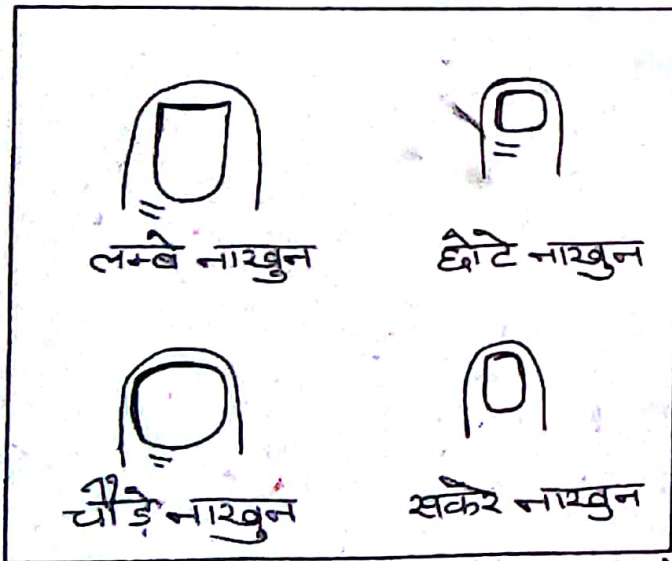 लम्बे नाखुन
छोटे नाखुन
चौड़े नाखुन
सकरे नाखुन